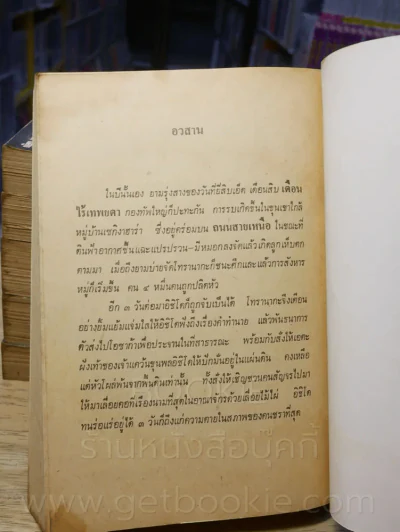 อวสาน
ในปีนั้นเอง ยามรุ่งสางของวันที่ยี่สิบเอ็ด เดือนสิบ เดือน
ไร้เทพยดา กองทัพใหญ่ก็ปะทะกัน การรบเกิดขึ้นในขุนเขาใกล้
หมู่บ้านเซกิงาฮาร่า ซึ่งอยู่คร่อมบน ถนนสายเหนือ ในขณะที่
ดินฟ้าอากาศชื้นและแปรปรวน–มีหมอกลงจัดแล้วเกิดลูกเห็บตก
ตามมา เมื่อถึงยามบ่ายจัดโทรานางะก็ชนะศึกและแล้วการสังหาร
หมู่ก็เริ่มขึ้น คน ๔ หมื่นคนถูกปลิดหัว
อีก ๓ วันต่อมาอิชิโดก็ถูกจับเป็นได้ โทรานางะจึงเตือน
อย่างยิ้มแย้มแจ่มใสให้อิชิโดฟังถึงเรื่องคำทำนาย แล้วพันธนาการ
ตัวส่งไปโอซาก้าเพื่อประจานในที่สาธารณะ พร้อมกับสั่งให้เอตะ
ฝังเท้าของเจ้าแคว้นขุนพลอิชิโดให้ปักมั่นอยู่ในแผ่นดิน คงเหลือ
แต่หัวโผล่พ้นจากพื้นดินเท่านั้น ทั้งสั่งให้เชิญชวนคนสัญจรไปมา
ให้มาเลื่อยคอที่เรืองนามที่สุดในอาณาจักรด้วยเลื่อยไม้ไผ่ อิชิโด
ทนร่อแร่อยู่ได้ ๓ วันก็ถึงแก่ความตายในสภาพของคนชราที่สุด
ร้านหนังสือบุคกี้
www.getbookie.com